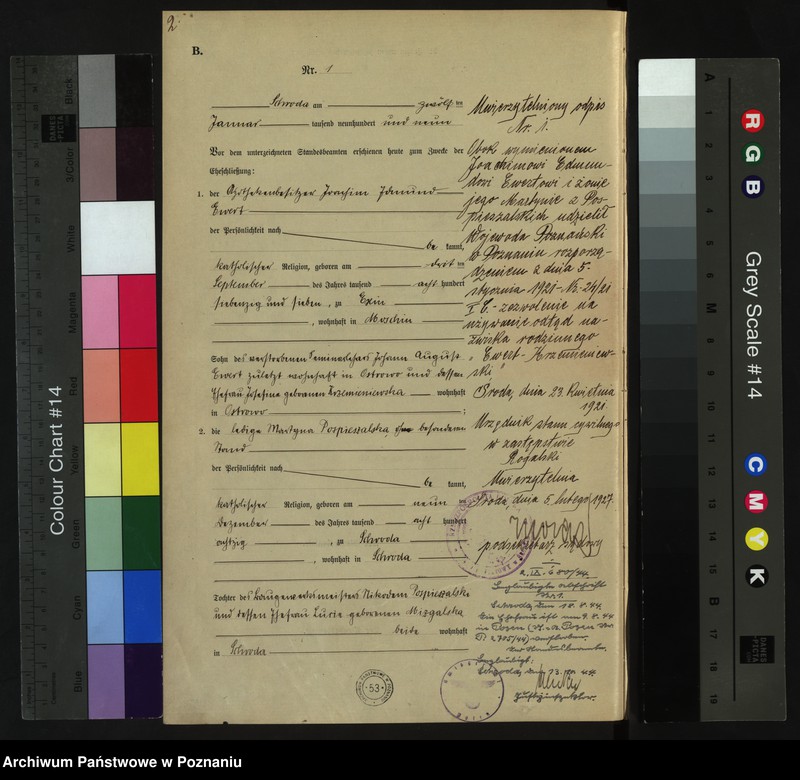 2
B.
Nr. 1
Schroda am zwölf ten
Januar tausend neunhundert und neun
Vor dem unterzeichneten Standesbeamten erschienen heute zum Zwecke der
Eheschließung:
1. der Apothekenbesitzer Joachim Edmund
Ewert
der Persönlichkeit nach
be kannt,
katholischer Religion, geboren am dritten
September des Jahres tausend acht hundert
siebenzig und sieben, zu Exin
, wohnhaft in Moschin
Sohn des verstorbenen Seminarlehrers Johann August
Ewert zuletzt wohnhaft in Ostrowo und dessen
Ehefrau Josefine geborenen Krzemieniewska wohnhaft
in Ostrowo ;
2. die ledige Martyna Pospieszalska, ohne besonderen
Stand
der Persönlichkeit nach
be kannt,
katholischer Religion, geboren am neun ten
Dezember des Jahres tausend acht hundert
achtzig , zu Schroda
, wohnhaft in Schroda
Tochter des Baugewerksmeisters Nikodem Pospieszalski
und dessen Ehefrau Lucie geborenen Mizgalska
beide wohnhaft
in Schroda
Uwierzytelniony odpis
Nr. 1.
Obok wymienionem
Joachimowi Edmun-
dowi Ewertowi i żonie
jego Martynie z Pos-
pieszalskich udzielił
Wojewoda Poznański
w Poznaniu rozporzą-
dzeniem z dnia 5.
stycznia 1921 Nr. 24/21
I C. zezwolenie na
używanie odtąd na-
zwiska rodzinnego
"Ewert-Krzemieniew-
ski"
Środa, dnia 23. kwietnia
1921.
Urzędnik stanu cywilnego
w zastępstwie
Rogalski
Uwierzytelnia
Środa, dnia 5 lutego 1927.
podsekretarz sądowy
Beglaubigte Abschrift
Nr. 1.
Schroda, den 18. 8. 44
Der Standesbeamte
Beglaubigt:
Justizinspektor.
53
Colour Chart #14
Black
3/Color
White
Magenta
Red
Yellow
Green
Cyan
Blue
DANES
PICTA
Grey Scale #14
R
G
B
C
M
Y
K
A
1
2
3
4
5
6
M
8
9
10
11
12
13
14
15
B
17
18
19
Archiwum Państwowe w Poznaniu